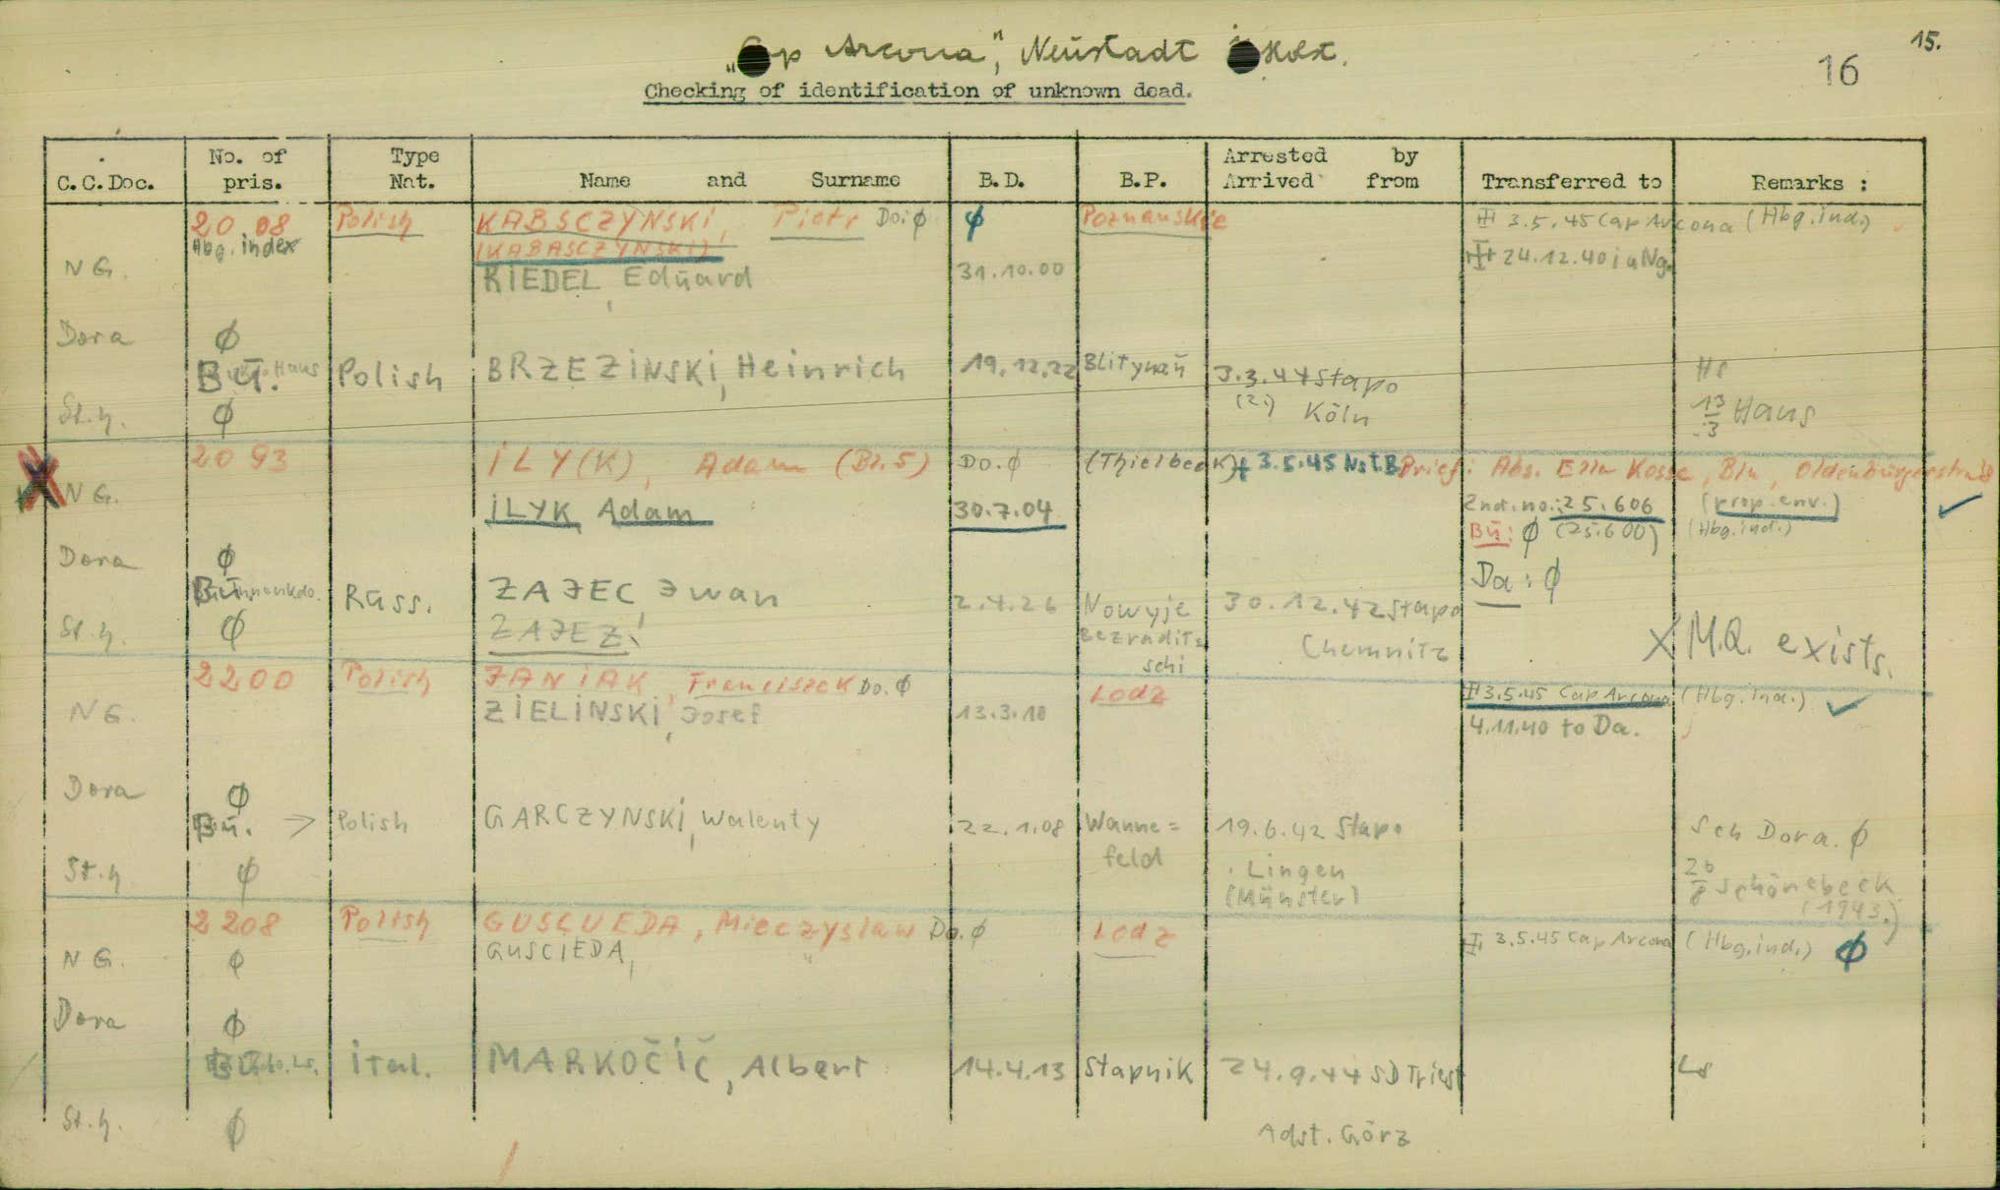 "Cap Arcona", Neustadt i Holst.
15.
16
Checking of identification of unknown dead.
C.C.Doc. No. of pris. Type Nat. Name and Surname B.D. B.P. Arrested by Arrived from Transferred to Remarks :
20 08 Polish KABSCZYNSKI, Piotr Do: ϕ ϕ Poznanskie 3.5.45 Cap Arcona (Hbg.ind.)
Hbg. index (KABASCZYNSKI)
24.12.40 i a Ng.
NG. RIEDEL, Eduard 31.10.00
Dora ϕ
Bu. Haus Polish BRZEZINSKI, Heinrich 19.12.22 Blitynañ 3.3.44 Stapo
(2.) Köln
St.h. ϕ 13/3 Haus
2093 ILY(K), Adam (Bl.5) Do. ϕ (Thielbeck) + 3.5.45 Nst.B Brief: Abs. Ella Kosse, Bln, Oldenburgerstr.
X NG. ILYK Adam 30.7.04 2nd.no.: 25.606 (prop.env.)
Bu: ϕ (25.600) (Hbg.ind.)
Dora ϕ
Da: ϕ
Bu. Russ. ZAJEC, Jwan 2.4.26 Nowyje 30.12.42 Stapo
St.h. ϕ ZAJEZ! Bezradits
schi Chemnitz
X M.Q. exists.
2200 Polish JANIAK, Franciszek Do. ϕ Lodz 3.5.45 Cap Arcona (Hbg.ind.)
NG. ZIELINSKI, Josef 13.3.18 4.11.40 to Da.
Dora ϕ
Bu. → Polish GARCZYNSKI, Walenty 22.1.08 Wanne= 19.6.42 Stapo Sch Dora. ϕ
feld Lingen
St.h ϕ (Münster) 26/8 Schönebeck
(1943.)
2208 Polish GUSCUEDA, Mieczyslaw Do. ϕ Lodz 3.5.45 Cap Arcona (Hbg.ind.) ϕ
NG. ϕ GUSCIEDA,
Dora ϕ
Bu. Ls. Ital. MARKOČIČ, Albert 14.4.13 Stapnik 24.9.44 SD Triest Ls
St.h. ϕ Adst. Görz